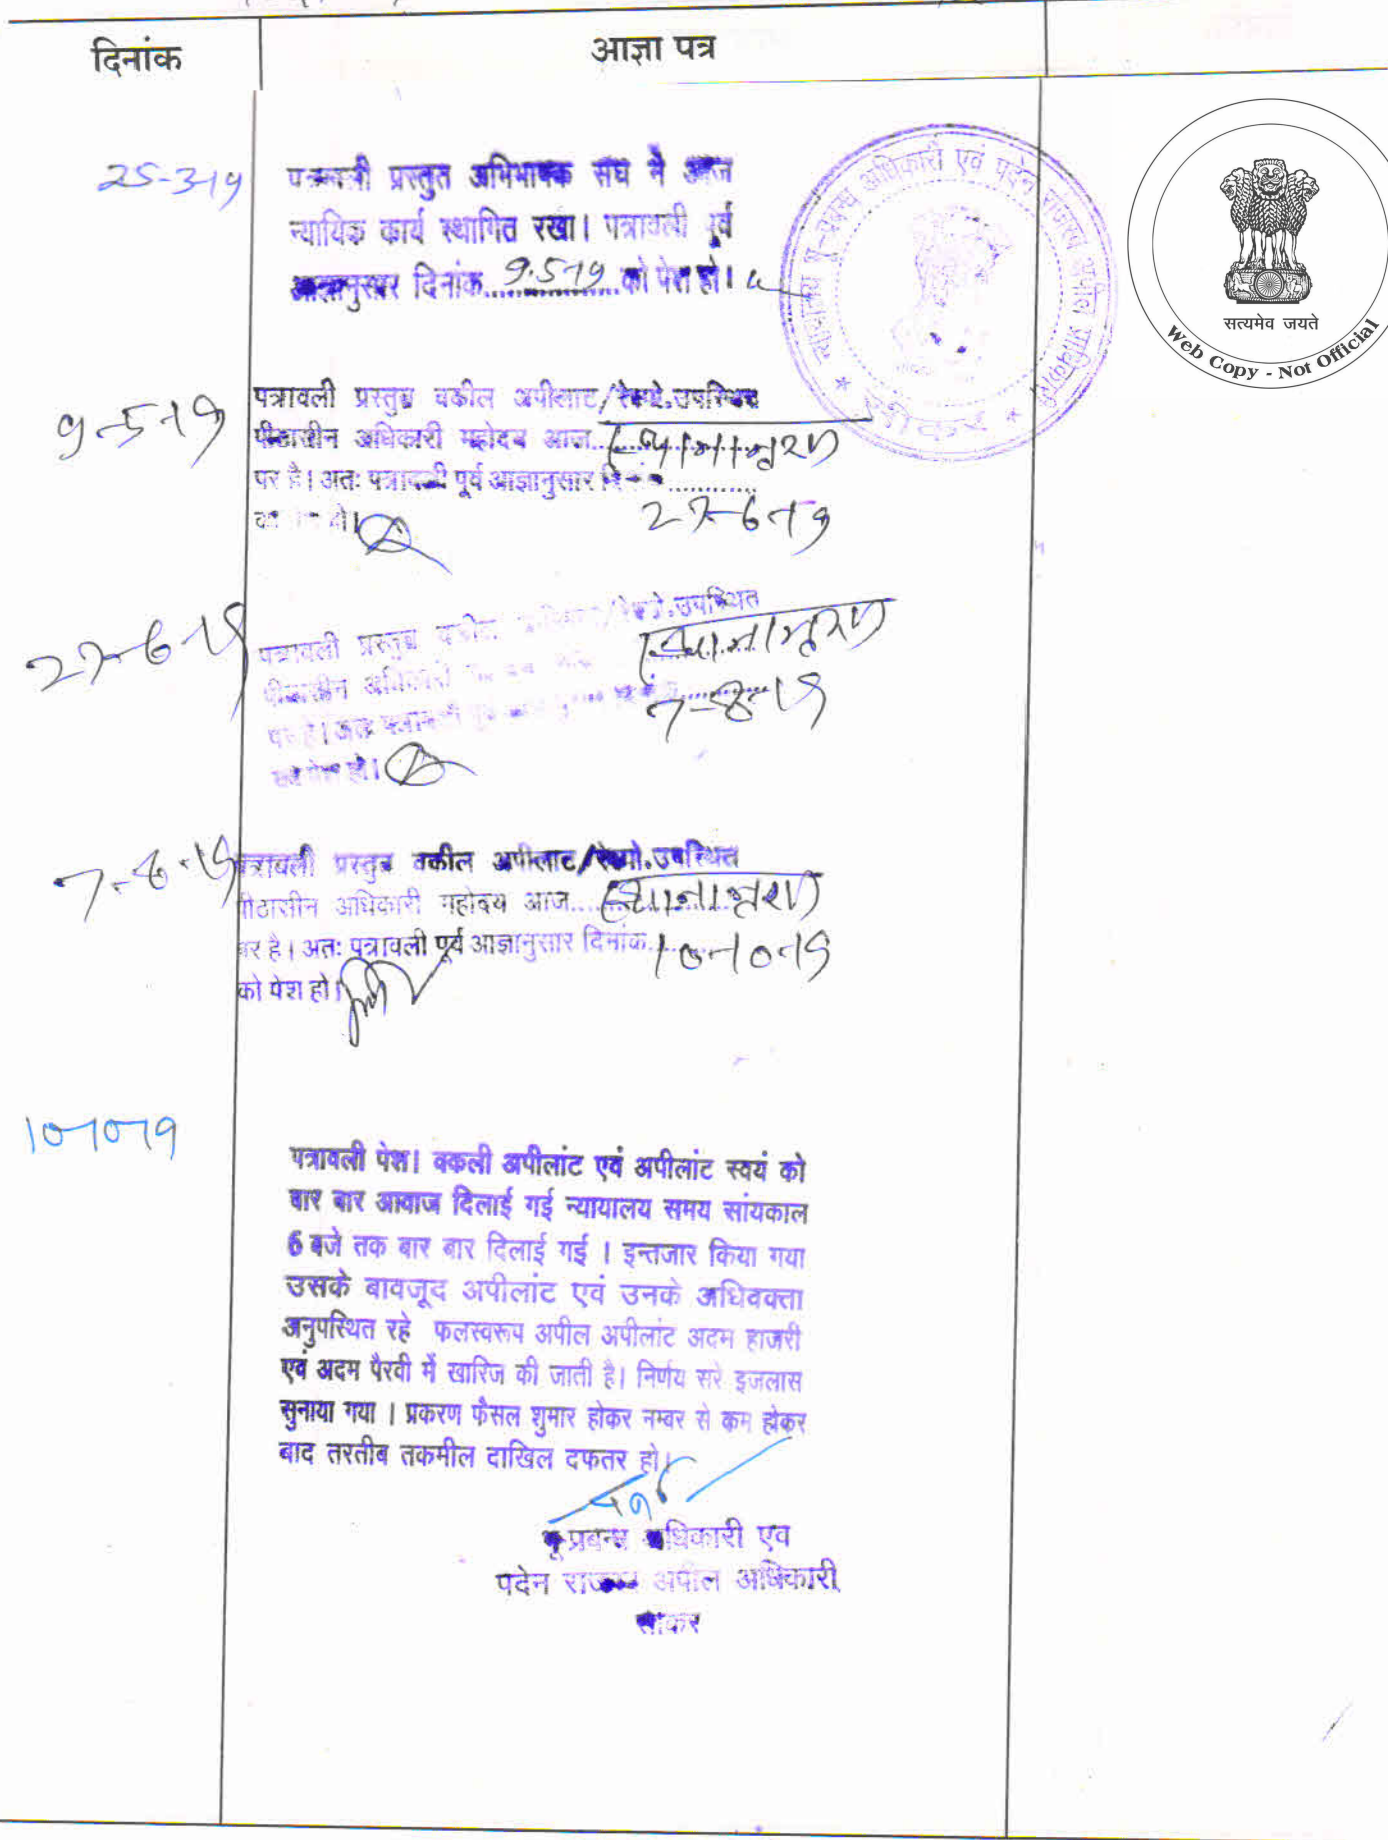 दिनांक
आज्ञा पत्र
25-3-19
पत्रावली प्रस्तुत अभिभाषक संघ ने आज
न्यायिक कार्य स्थागित रखा। पत्रावली पूर्व
आज्ञानुसार दिनांक 9.5-19 को पेश हो।
न्यायालय भू-प्रबन्ध अधिकारी एवं पदेन राजस्व अपील प्राधिकारी
★ सीकर ★
सत्यमेव जयते
Web Copy - Not Official
9-5-19
पत्रावली प्रस्तुत वकील अपीलाट/रेस्पो.उपस्थित
पीठासीन अधिकारी महोदय आज.. स्थानान्तरण
पर है। अतः पत्रावली पूर्व आज्ञानुसार
27-6-19
27-6-19
पत्रावली प्रस्तुत वकील /रेस्पो.उपस्थित
पीठासीन अधिकारी स्थानान्तरण
पर है। अतः पत्रावली पूर्व 7-8-19
को पेश हो।
7-8-19
पत्रावली प्रस्तुत वकील अपीलाट/रेस्पो.उपस्थित
पीठासीन अधिकारी महोदय आज... स्थानान्तरण
पर है। अतः पत्रावली पूर्व आज्ञानुसार दिनांक 10-10-19
को पेश हो।
10-10-19
पत्रावली पेश। वकली अपीलांट एवं अपीलांट स्वयं को
बार बार आवाज दिलाई गई न्यायालय समय सांयकाल
6 बजे तक बार बार दिलाई गई । इन्तजार किया गया
उसके बावजूद अपीलांट एवं उनके अधिवक्ता
अनुपस्थित रहे फलस्वरूप अपील अपीलांट अदम हाजरी
एवं अदम पैरवी में खारिज की जाती है। निर्णय सरे इजलास
सुनाया गया । प्रकरण फैसल शुमार होकर नम्बर से कम होकर
बाद तरतीब तकमील दाखिल दफतर हो।
भू-प्रबन्ध अधिकारी एव
पदेन राजस्व अपील अधिकारी
सीकर